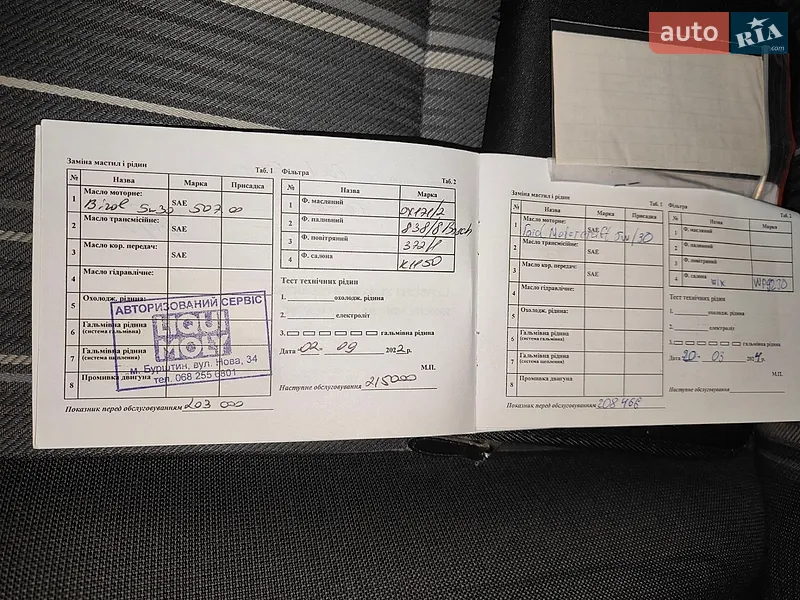 auto RIA .com
Заміна мастил і рідин
Таб. 1
№ Назва Марка Присадка
1 Масло моторне: SAE
5w30 507 00
2 Масло трансмісійне: SAE
3 Масло кор. передач: SAE
4 Масло гідравлічне:
5 Охолодж. рідина:
6 Гальмівна рідина
(система гальмівна)
7 Гальмівна рідина
(система щеплення)
8 Промивка двигуна
АВТОРИЗОВАНИЙ СЕРВІС
LIQUI
MOLY
м. Бурштин, вул. Нова, 34
тел. 068 255 6801
Показник перед обслуговуванням 203 000
Фільтра
Таб. 2
№ Назва Марка
1 Ф. масляний OX171/2
2 Ф. паливний 838/8 Bosch
3 Ф. повітряний 372/1
4 Ф. салона
Тест технічних рідин
1. охолодж. рідина
2. електроліт
3. гальмівна рідина
Дата 02 09 2022 р.
М.П.
Наступне обслуговування 215000
Заміна мастил і рідин
Таб. 1
№ Назва Марка Присадка
1 Масло моторне: SAE
Ford Motorcraft 5w/30
2 Масло трансмісійне: SAE
3 Масло кор. передач: SAE
4 Масло гідравлічне:
5 Охолодж. рідина:
6 Гальмівна рідина
(система гальмівна)
7 Гальмівна рідина
(система щеплення)
8 Промивка двигуна
Показник перед обслуговуванням 208 466
Фільтра
Таб. 2
№ Назва Марка
1 Ф. масляний
2 Ф. паливний
3 Ф. повітряний
4 Ф. салона
Тест технічних рідин
1. охолодж. рідина
2. електроліт
3. гальмівна рідина
Дата 20 03 р.
М.П.
Наступне обслуговування